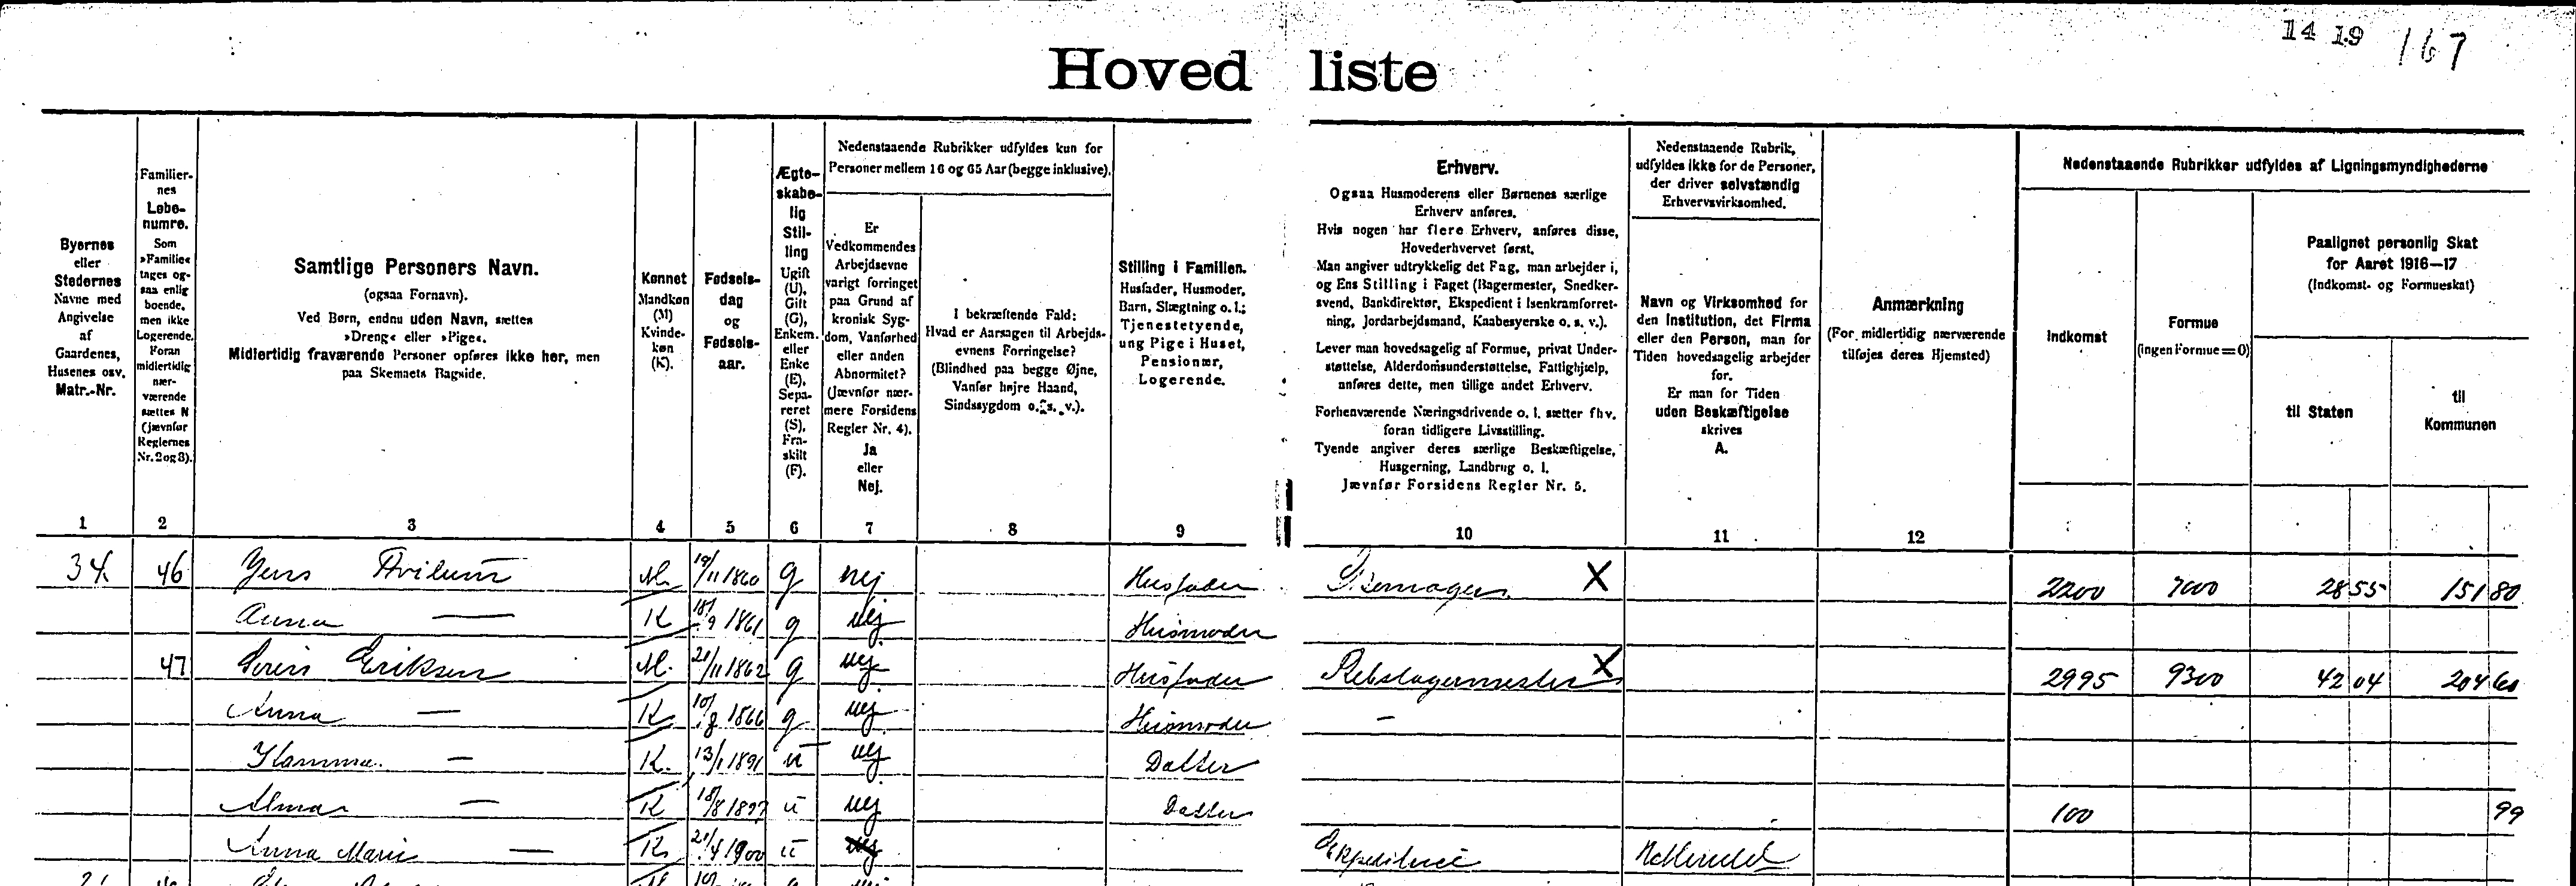 14 19 167
Hoved liste
Byernes
eller
Stedernes
Navne med
Angivelse
af
Gaardenes,
Husenes osv.
Matr.-Nr.
Familier-
nes
Løbe-
numre.
Som
»Familie«
tages og-
saa enlig
boende,
men ikke
Logerende.
Foran
midlertidig
nær-
værende
sættes N
(jævnfør
Reglernes
Nr. 2 og 3).
Samtlige Personers Navn.
(ogsaa Fornavn).
Ved Børn, endnu uden Navn, sættes
»Dreng« eller »Pige«.
Midlertidig fraværende Personer opføres ikke her, men
paa Skemaets Bagside.
Kønnet
Mandkøn
(M)
Kvinde-
køn
(K).
Fødsels-
dag
og
Fødsels-
aar.
Ægte-
skabe-
lig
Stil-
ling
Ugift
(U),
Gift
(G),
Enkem.
eller
Enke
(E),
Sepa-
reret
(S),
Fra-
skilt
(F).
Nedenstaaende Rubrikker udfyldes kun for
Personer mellem 16 og 65 Aar (begge inklusive).
Er
Vedkommendes
Arbejdsevne
varigt forringet
paa Grund af
kronisk Syg-
dom, Vanførhed
eller anden
Abnormitet?
(Jævnfør nær-
mere Forsidens
Regler Nr. 4).
Ja
eller
Nej.
I bekræftende Fald:
Hvad er Aarsagen til Arbejds-
evnens Forringelse?
(Blindhed paa begge Øjne,
Vanfør højre Haand,
Sindssygdom o. s. v.).
Stilling i Familien.
Husfader, Husmoder,
Barn, Slægtning o. l.;
Tjenestetyende,
ung Pige i Huset,
Pensionær,
Logerende.
Erhverv.
Ogsaa Husmoderens eller Børnenes særlige
Erhverv anføres.
Hvis nogen har flere Erhverv, anføres disse,
Hovederhvervet først.
Man angiver udtrykkelig det Fag, man arbejder i,
og Ens Stilling i Faget (Bagermester, Snedker-
svend, Bankdirektør, Ekspedient i Isenkramforret-
ning, Jordarbejdsmand, Kaabesyerske o. s. v.).
Lever man hovedsagelig af Formue, privat Under-
støttelse, Alderdomsunderstøttelse, Fattighjælp,
anføres dette, men tillige andet Erhverv.
Forhenværende Næringsdrivende o. l. sætter fhv.
foran tidligere Livsstilling.
Tyende angiver deres særlige Beskæftigelse,
Husgerning, Landbrug o. l.
Jævnfør Forsidens Regler Nr. 5.
Nedenstaaende Rubrik,
udfyldes ikke for de Personer,
der driver selvstændig
Erhvervsvirksomhed.
Navn og Virksomhed for
den Institution, det Firma
eller den Person, man for
Tiden hovedsagelig arbejder
for.
Er man for Tiden
uden Beskæftigelse
skrives
A.
Anmærkning
(For midlertidig nærværende
tilføjes deres Hjemsted)
Nedenstaaende Rubrikker udfyldes af Ligningsmyndighederne
Indkomst
Formue
(ingen Formue = 0)
Paalignet personlig Skat
for Aaret 1916—17
(Indkomst- og Formueskat)
til Staten
til
Kommunen
1 2 3 4 5 6 7 8 9 10 11 12
34. 46 Jens Hvilum M. 19/11 1860 g nej Husfader X 2200 7000 28 55 151 80
Anna — K 18/9 1861 g nej Husmoder
47 Søren Eriksen M. 21/11 1862 g nej Husfader Rebslagermester X 2995 9300 42 04 204 60
Anna — K 10/8 1866 g nej Husmoder —
Hamma — K. 13/1 1891 u nej Datter
Alma — K 18/8 1897 u nej Datter 100 99
Anna Marie — K. 21/4 1900 u nej